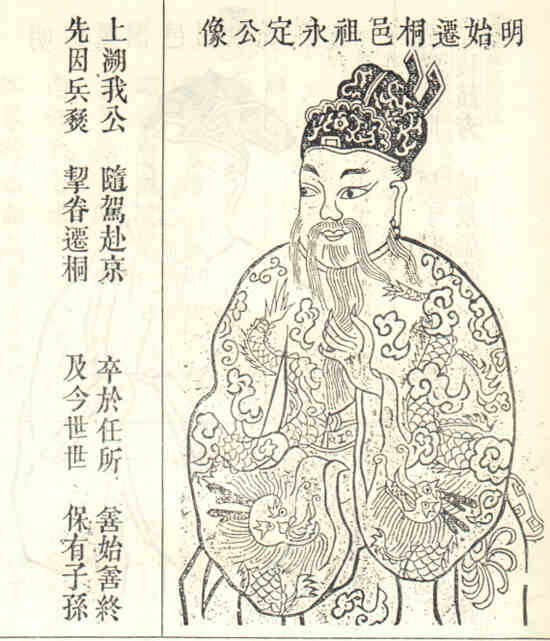 明始遷桐邑祖永定公像
上溯我公 隨駕赴京 卒於任所 善始善終
先因兵燹 挈眷遷桐 及今世世 保有子孫